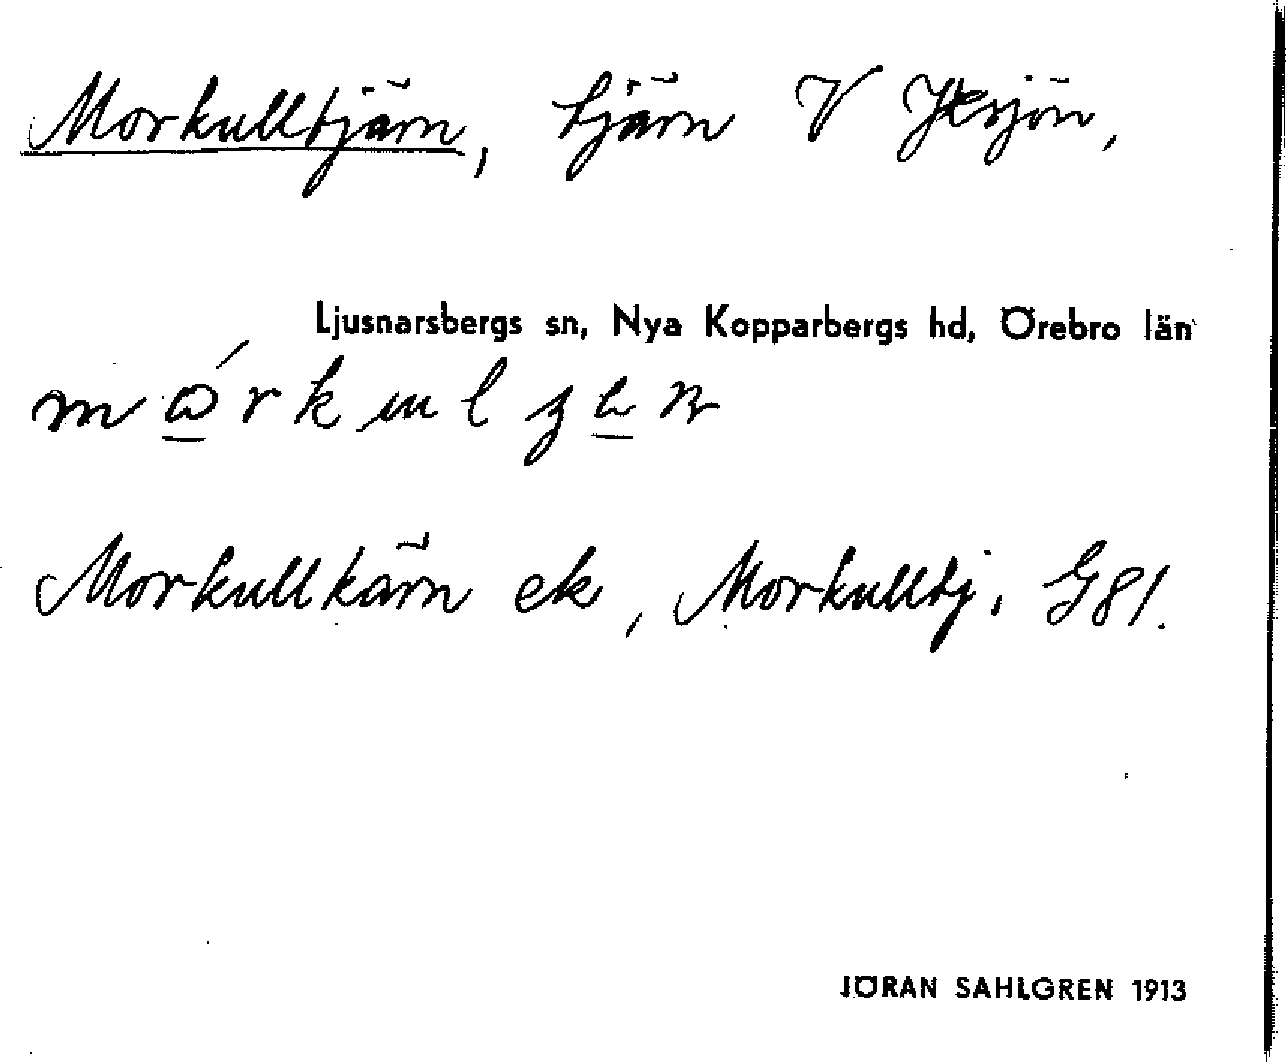 Morkulltjärn, tjärn V
Ljusnarsbergs sn, Nya Kopparbergs hd, Örebro län
Morkullkärn ek, Morkulltj. G81.
JÖRAN SAHLGREN 1913